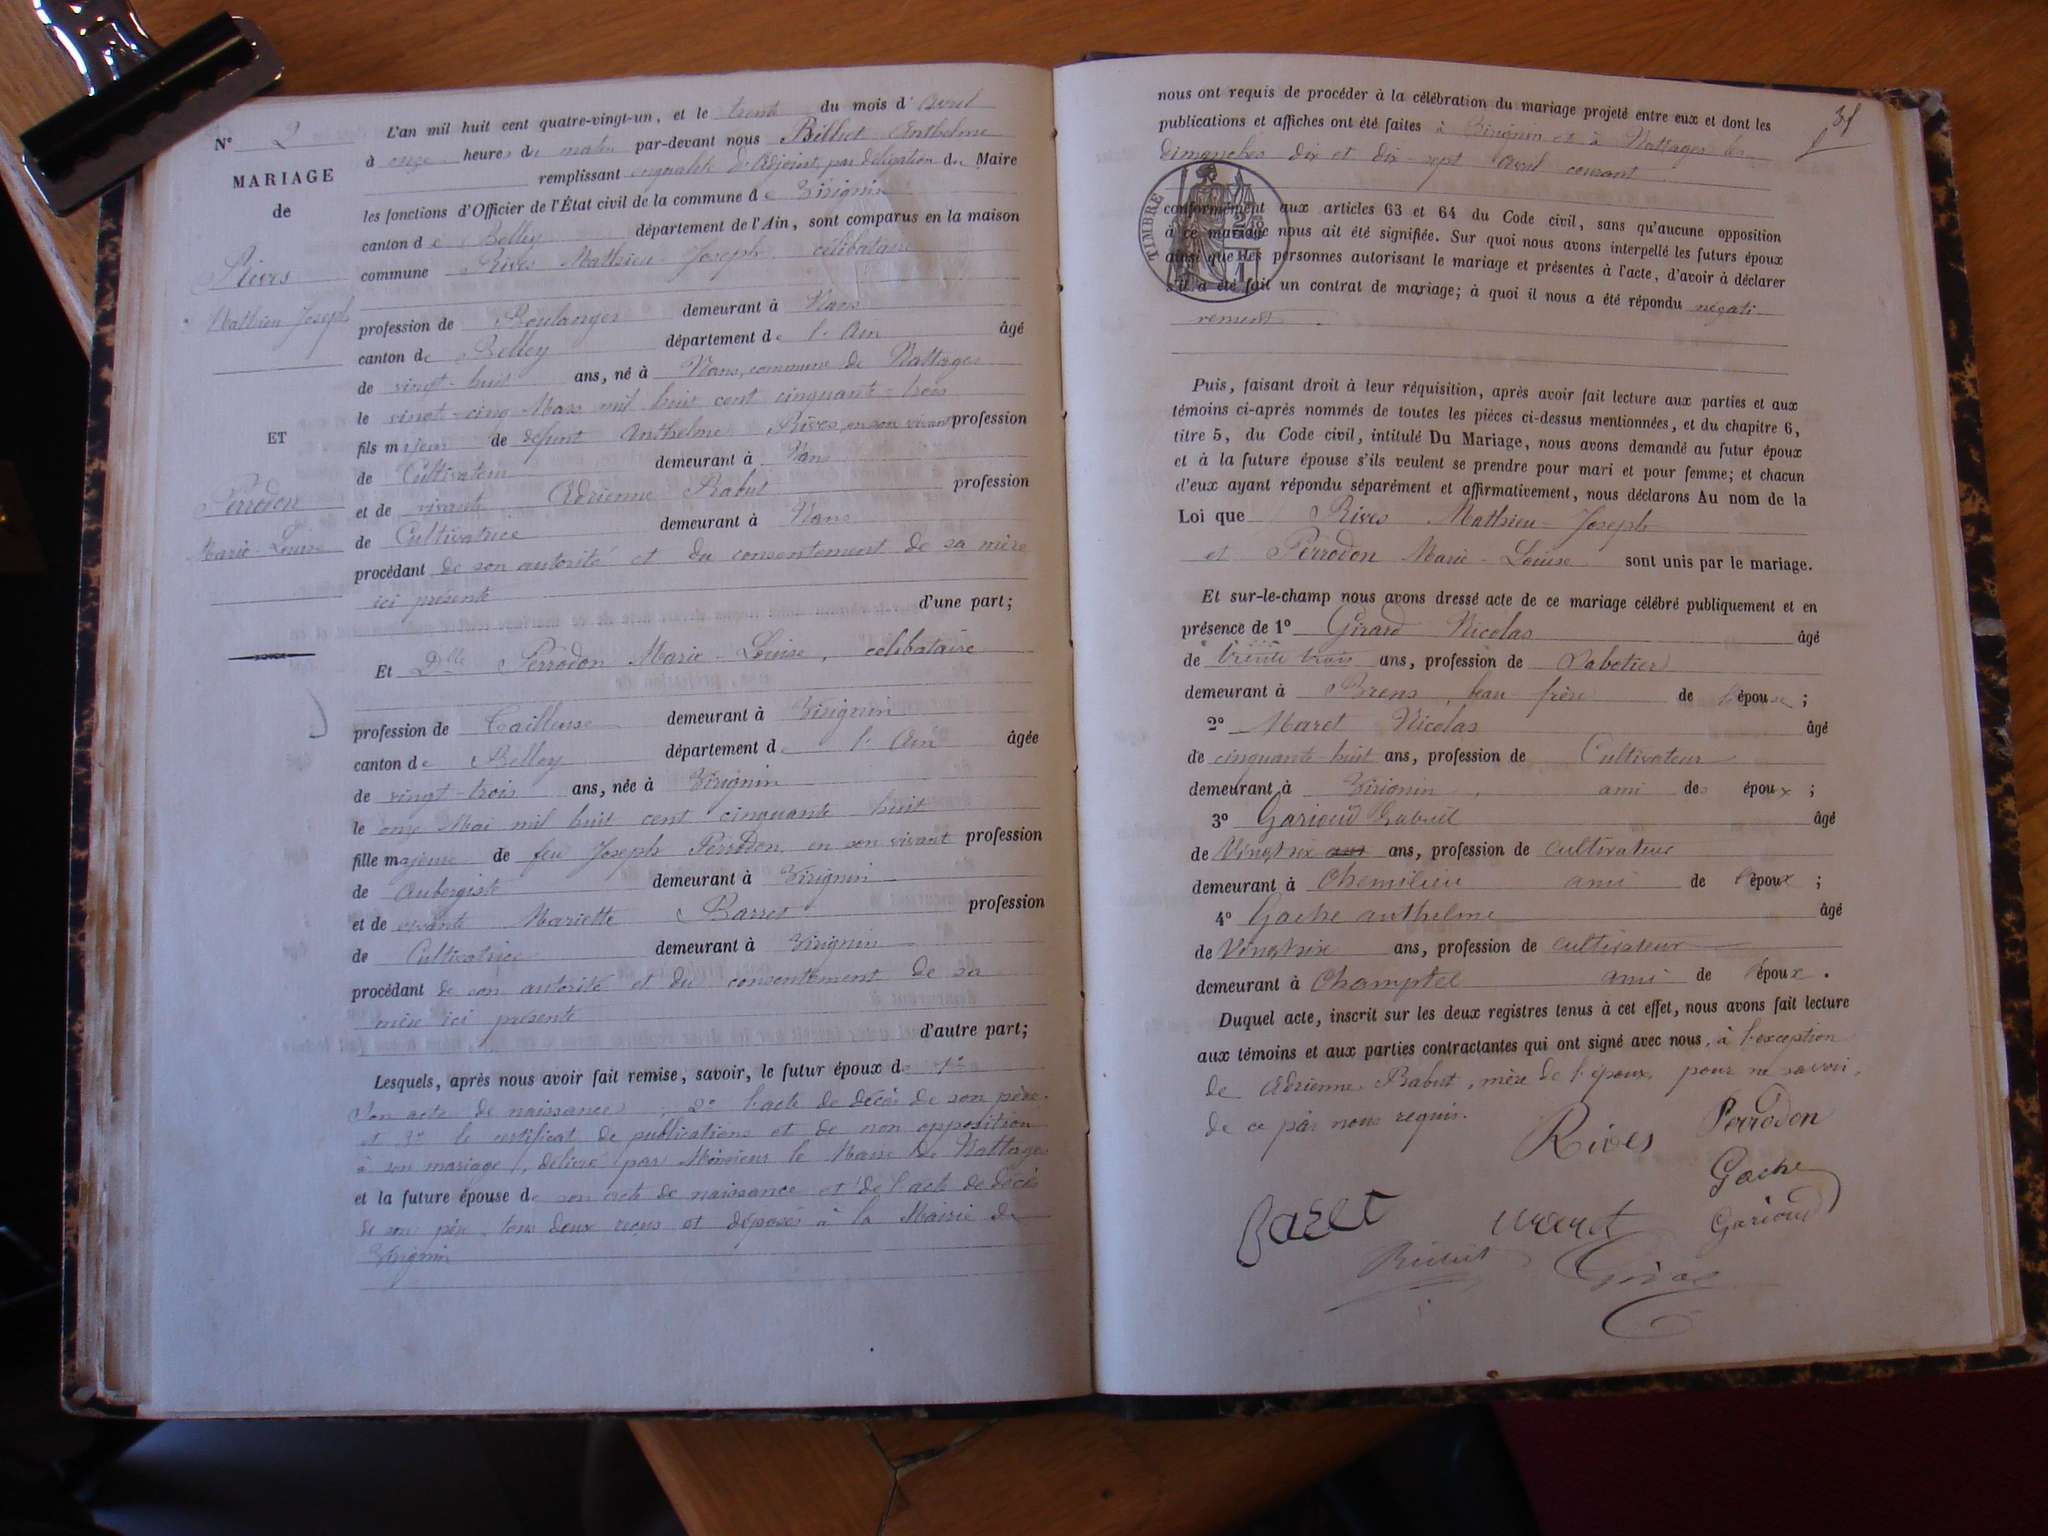 N° 2
MARIAGE
de
Rives
Mathieu Joseph
ET
Perrodon
Marie-Louise
L'an mil huit cent quatre-vingt-un, et le trente du mois d'Avril
à onze heures du matin par-devant nous Billiet Anthelme
remplissant en qualité d'Adjoint, par délégation du Maire
les fonctions d'Officier de l'État civil de la commune de Virignin
canton de Belley département de l'Ain, sont comparus en la maison
commune Rives Mathieu-Joseph, célibataire
profession de Boulanger demeurant à Nans
canton de Belley département de l'Ain âgé
de vingt-huit ans, né à Nans, commune de Nattages
le vingt-cinq Mars mil huit cent cinquante-trois
fils majeur de défunt Anthelme Rives, en son vivant profession
de Cultivateur demeurant à Nans
et de vivante Adrienne Rabut profession
de Cultivatrice demeurant à Nans
procédant de son autorité et du consentement de sa mère
ici présente d'une part;
Et Dlle Perrodon Marie-Louise, célibataire
profession de Tailleuse demeurant à Virignin
canton de Belley département de l'Ain âgée
de vingt-trois ans, née à Virignin
le onze Mai mil huit cent cinquante huit
fille majeure de feu Joseph Perrodon, en son vivant profession
de Aubergiste demeurant à Virignin
et de vivante Mariette profession
de Cultivatrice demeurant à Virignin
procédant de son autorité et du consentement de sa
mère ici présente d'autre part;
Lesquels, après nous avoir fait remise, savoir, le futur époux de 1°
son acte de naissance; 2° l'acte de décès de son père,
et 3° le certificat de publications et de non opposition
à son mariage, délivré par Monsieur le Maire de Nattages
et la future épouse de son acte de naissance et de l'acte de décès
de son père, tous deux reçus et déposés à la Mairie de
Virignin
31
nous ont requis de procéder à la célébration du mariage projeté entre eux et dont les
publications et affiches ont été faites à Virignin et à Nattages les
dimanches dix et dix-sept Avril courant
TIMBRE
conformément aux articles 63 et 64 du Code civil, sans qu'aucune opposition
à ce mariage nous ait été signifiée. Sur quoi nous avons interpellé les futurs époux
ainsi que les personnes autorisant le mariage et présentes à l'acte, d'avoir à déclarer
s'il a été fait un contrat de mariage; à quoi il nous a été répondu négati
vement.
Puis, faisant droit à leur réquisition, après avoir fait lecture aux parties et aux
témoins ci-après nommés de toutes les pièces ci-dessus mentionnées, et du chapitre 6,
titre 5, du Code civil, intitulé Du Mariage, nous avons demandé au futur époux
et à la future épouse s'ils veulent se prendre pour mari et pour femme; et chacun
d'eux ayant répondu séparément et affirmativement, nous déclarons Au nom de la
Loi que Rives Mathieu-Joseph
et Perrodon Marie-Louise sont unis par le mariage.
Et sur-le-champ nous avons dressé acte de ce mariage célébré publiquement et en
présence de 1° Girard Nicolas âgé
de trente trois ans, profession de Sabotier
demeurant à Brens, beau-frère de l'épouse;
2° Maret Nicolas âgé
de cinquante-huit ans, profession de Cultivateur
demeurant à Virignin, ami des époux;
3° Garioud Gabriel âgé
de Vingtsix ans ans, profession de cultivateur
demeurant à Chemilieu ami de l'époux;
4° Gache anthelme âgé
de Vingtsix ans, profession de cultivateur
demeurant à Champtel ami de l'époux.
Duquel acte, inscrit sur les deux registres tenus à cet effet, nous avons fait lecture
aux témoins et aux parties contractantes qui ont signé avec nous, à l'exception
de Adrienne Rabut, mère de l'époux, pour ne savoir,
de ce par nous requis.
Rives Perrodon
Gache
Garioud